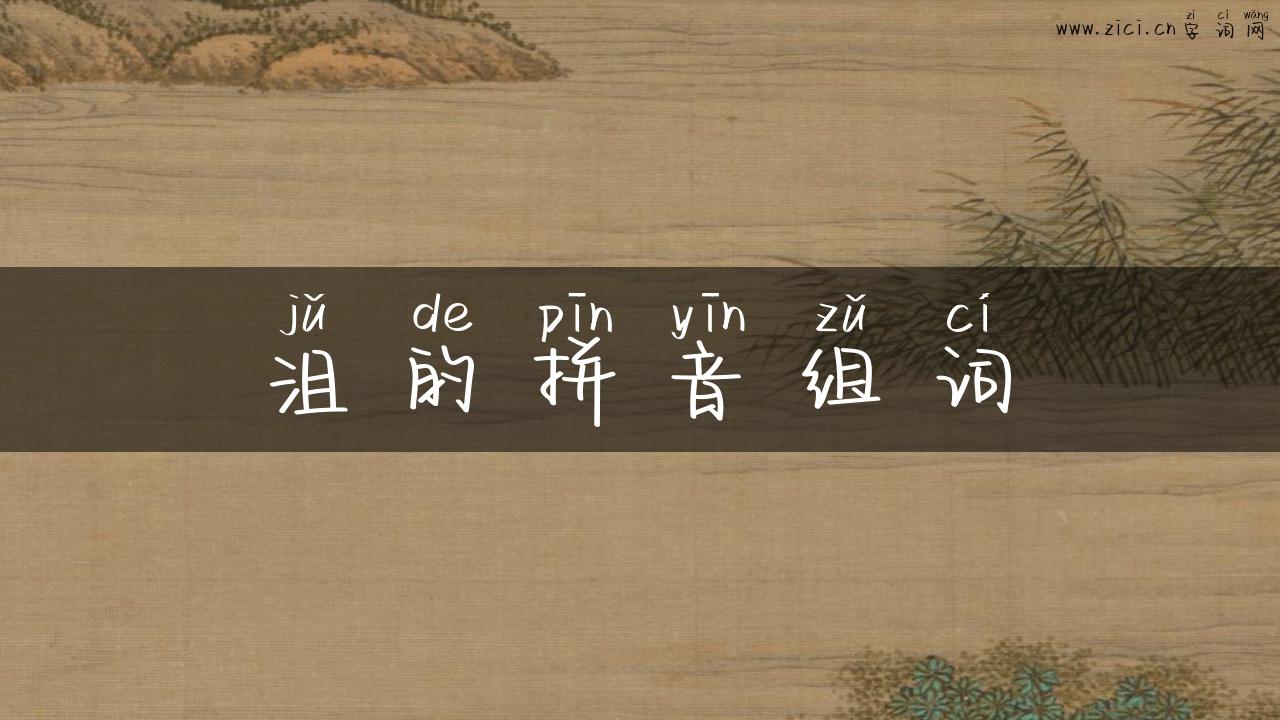 zì cí wǎng
www.zici.cn 字词网
jǔ de pīn yīn zǔ cí
沮的拼音组词